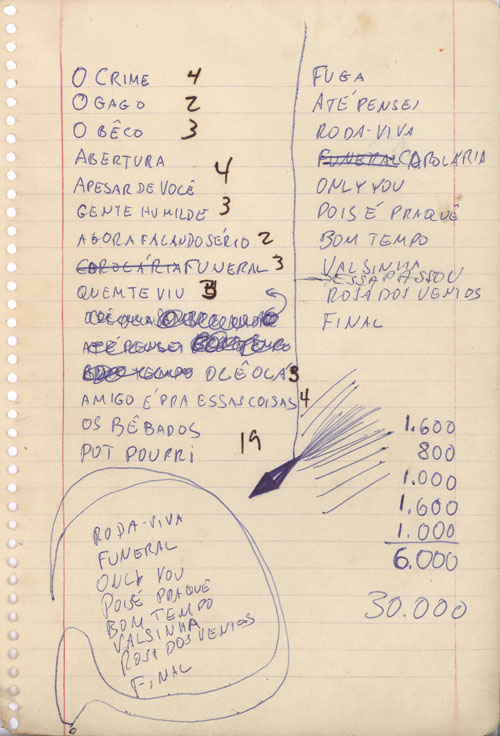 O CRIME 4
O GAGO 2
O BÊCO 3
ABERTURA
APESAR DE VOCÊ 4
GENTE HUMILDE 3
AGORA FALANDO SÉRIO 2
COROLÁRIA FUNERAL 3
QUEM TE VIU 3
ATÉ PENSEI
BOM TEMPO OLÊ OLÁ 3
AMIGO É PRA ESSAS COISAS 4
OS BÊBADOS
POT POURRI 19
FUGA
ATÉ PENSEI
RODA-VIVA
FUNERAL CAROLARIA
ONLY YOU
POIS É PRAQUÊ
BOM TEMPO
VALSINHA
ESSA PASSOU
ROSA DOS VENTOS
FINAL
1.600
800
1.000
1.600
1.000
6.000
30.000
RODA-VIVA
FUNERAL
ONLY YOU
POIS É PRAQUÊ
BOM TEMPO
VALSINHA
ROSA DOS VENTOS
FINAL